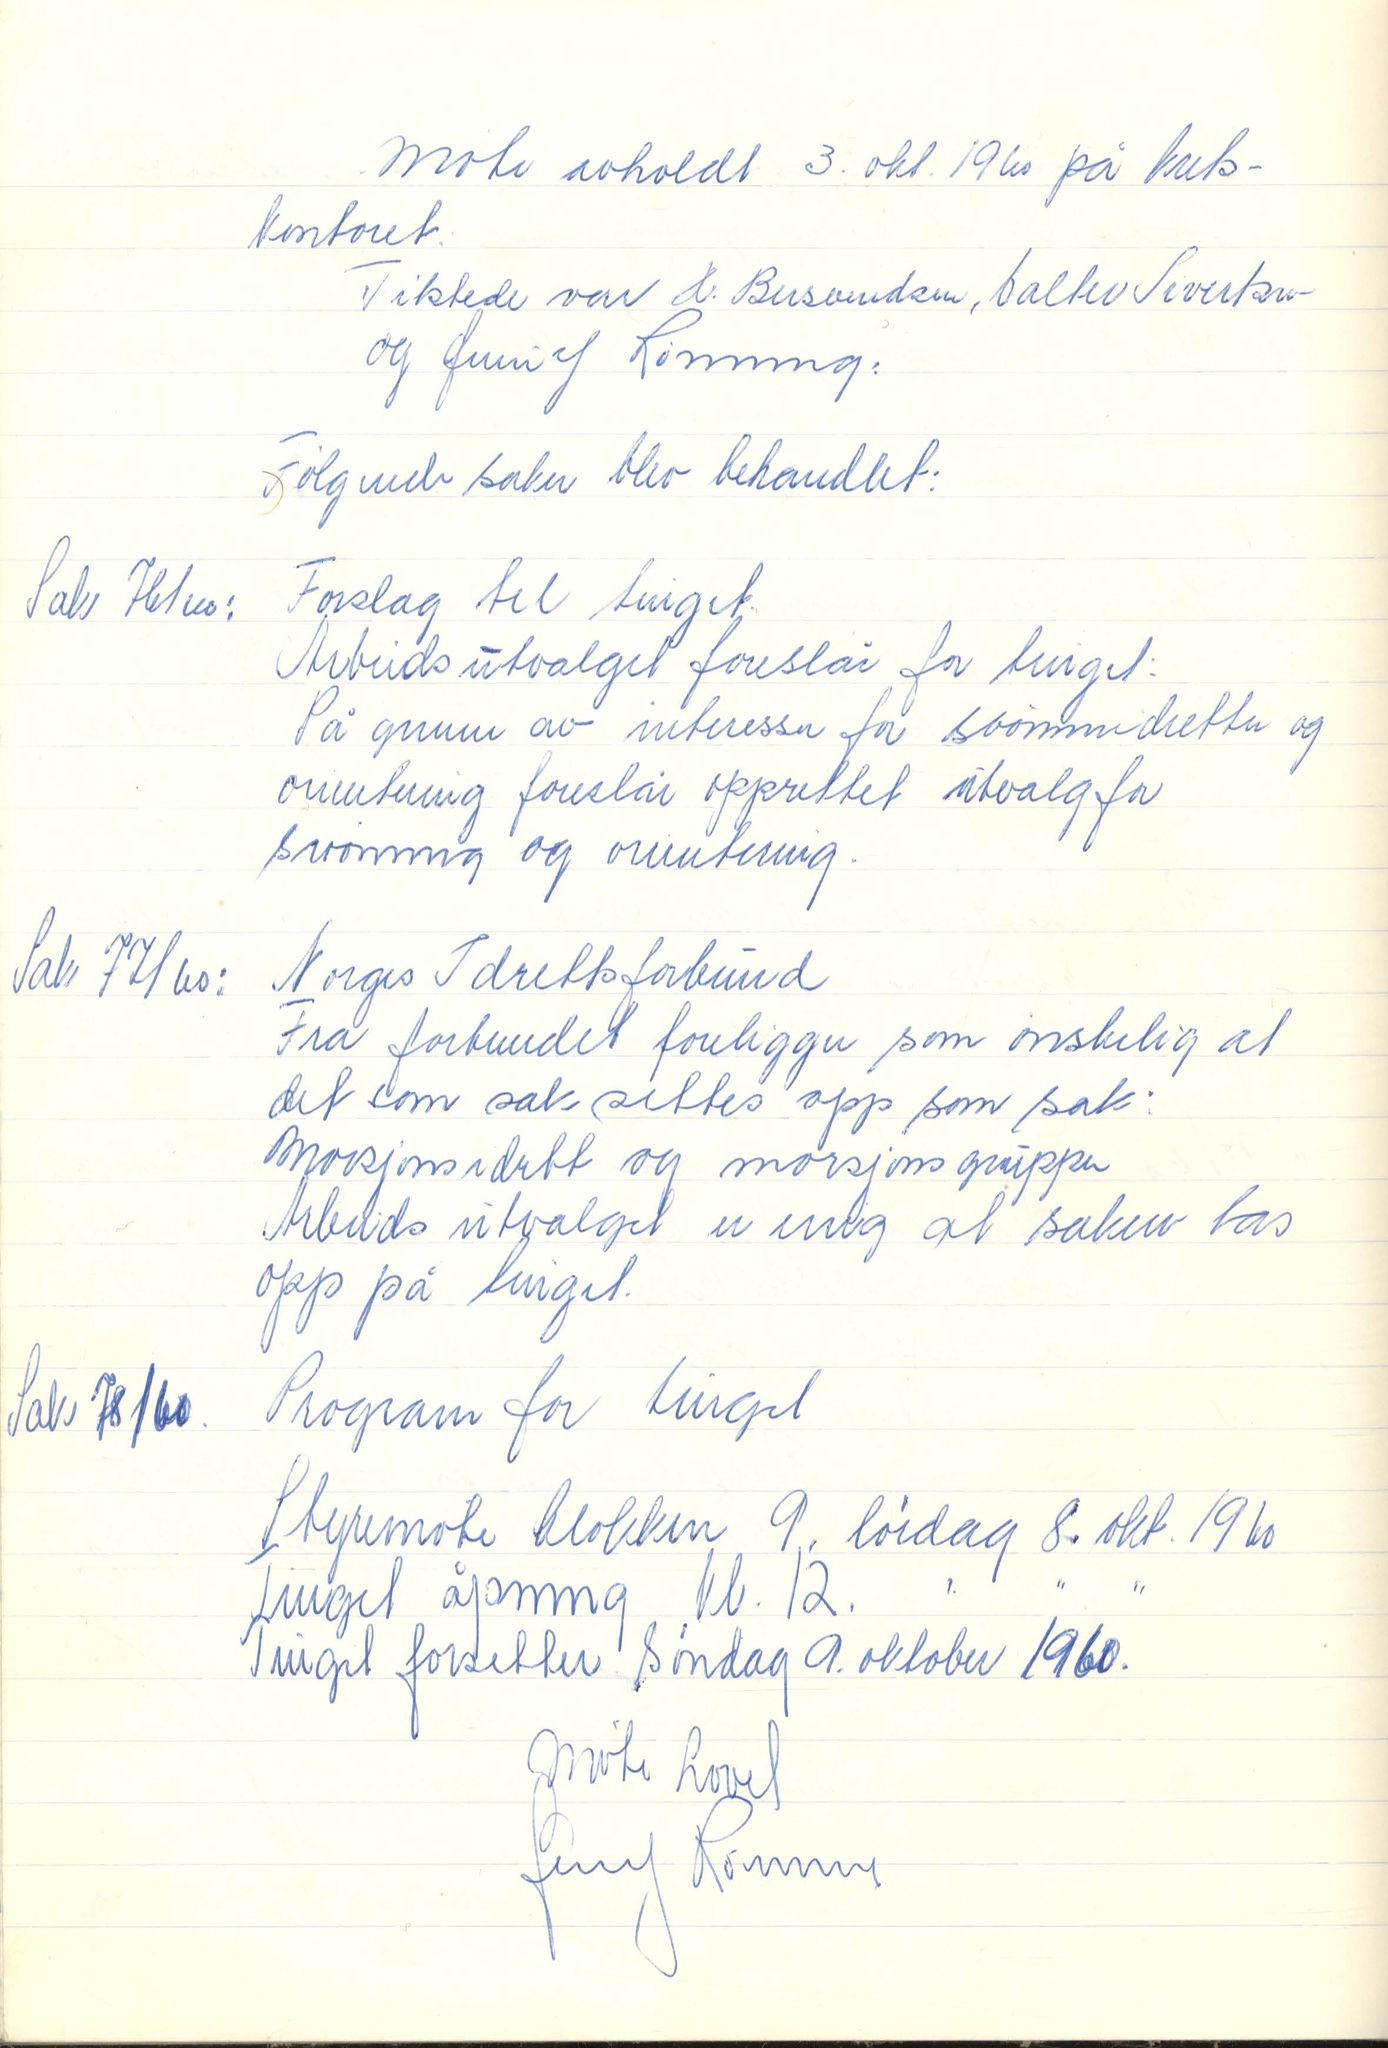 Möte avholdt 3. okt. 1960 på krets-
kontoret.
Tilstede var H. Berendsen, Walter Sivertsen
og Rönning.
Fölgende saker blev behandlet:
Sak 76/60: Forslag til tinget.
Arbeidsutvalget foreslår for tinget:
På grunn av interessen for svömmeidretten og
orientering foreslår opprettet utvalg for
svömming og orientering.
Sak 77/60: Norges Idrettsforbund
Fra forbundet foreligger som önskelig at
det som sak settes opp som sak:
Mosjonsidrett og mosjonsgrupper
Arbeidsutvalget er enig at saken tas
opp på tinget.
Sak 78/60. Program for tinget
Styremöte klokken 9. lördag 8. okt. 1960
Tinget åpning kl. 12. " " "
Tinget forsetter söndag 9. oktober 1960.
Möte hevet
Rönning